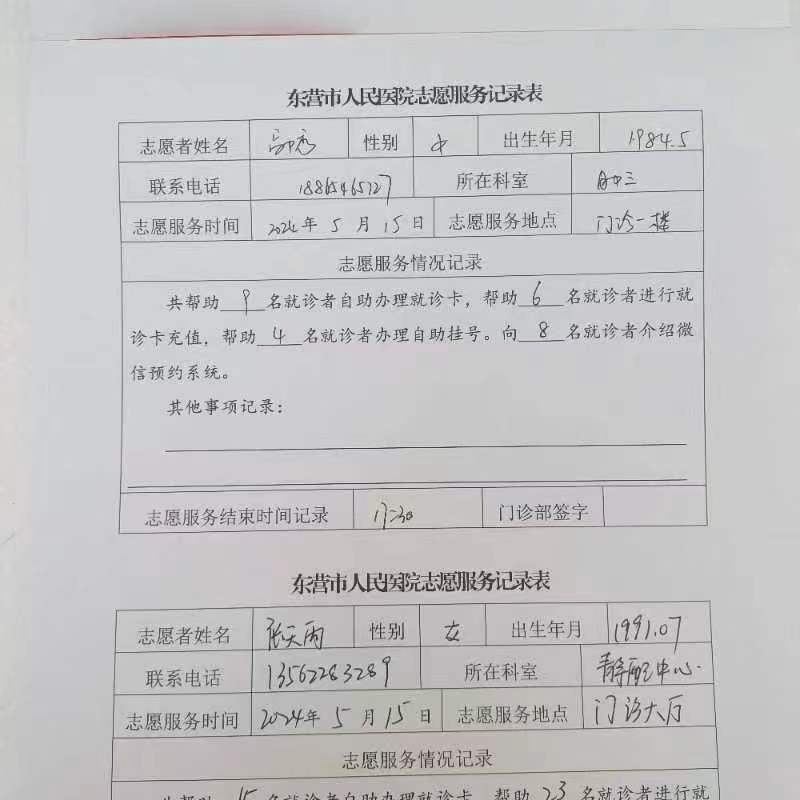 东营市人民医院志愿服务记录表
志愿者姓名 性别 女 出生年月 1984.5
联系电话 所在科室
志愿服务时间 2024年 5 月 15 日 志愿服务地点 门诊一楼
志愿服务情况记录
共帮助 9 名就诊者自助办理就诊卡，帮助 6 名就诊者进行就
诊卡充值，帮助 4 名就诊者办理自助挂号。向 8 名就诊者介绍微
信预约系统。
其他事项记录：
志愿服务结束时间记录 17:30 门诊部签字
东营市人民医院志愿服务记录表
志愿者姓名 张天雨 性别 女 出生年月 1991.07
联系电话 13562283289 所在科室 静配中心.
志愿服务时间 2024年 5 月 15 日 志愿服务地点 门诊大厅
志愿服务情况记录
共帮助 15 名就诊者自助办理就诊卡，帮助 23 名就诊者进行就